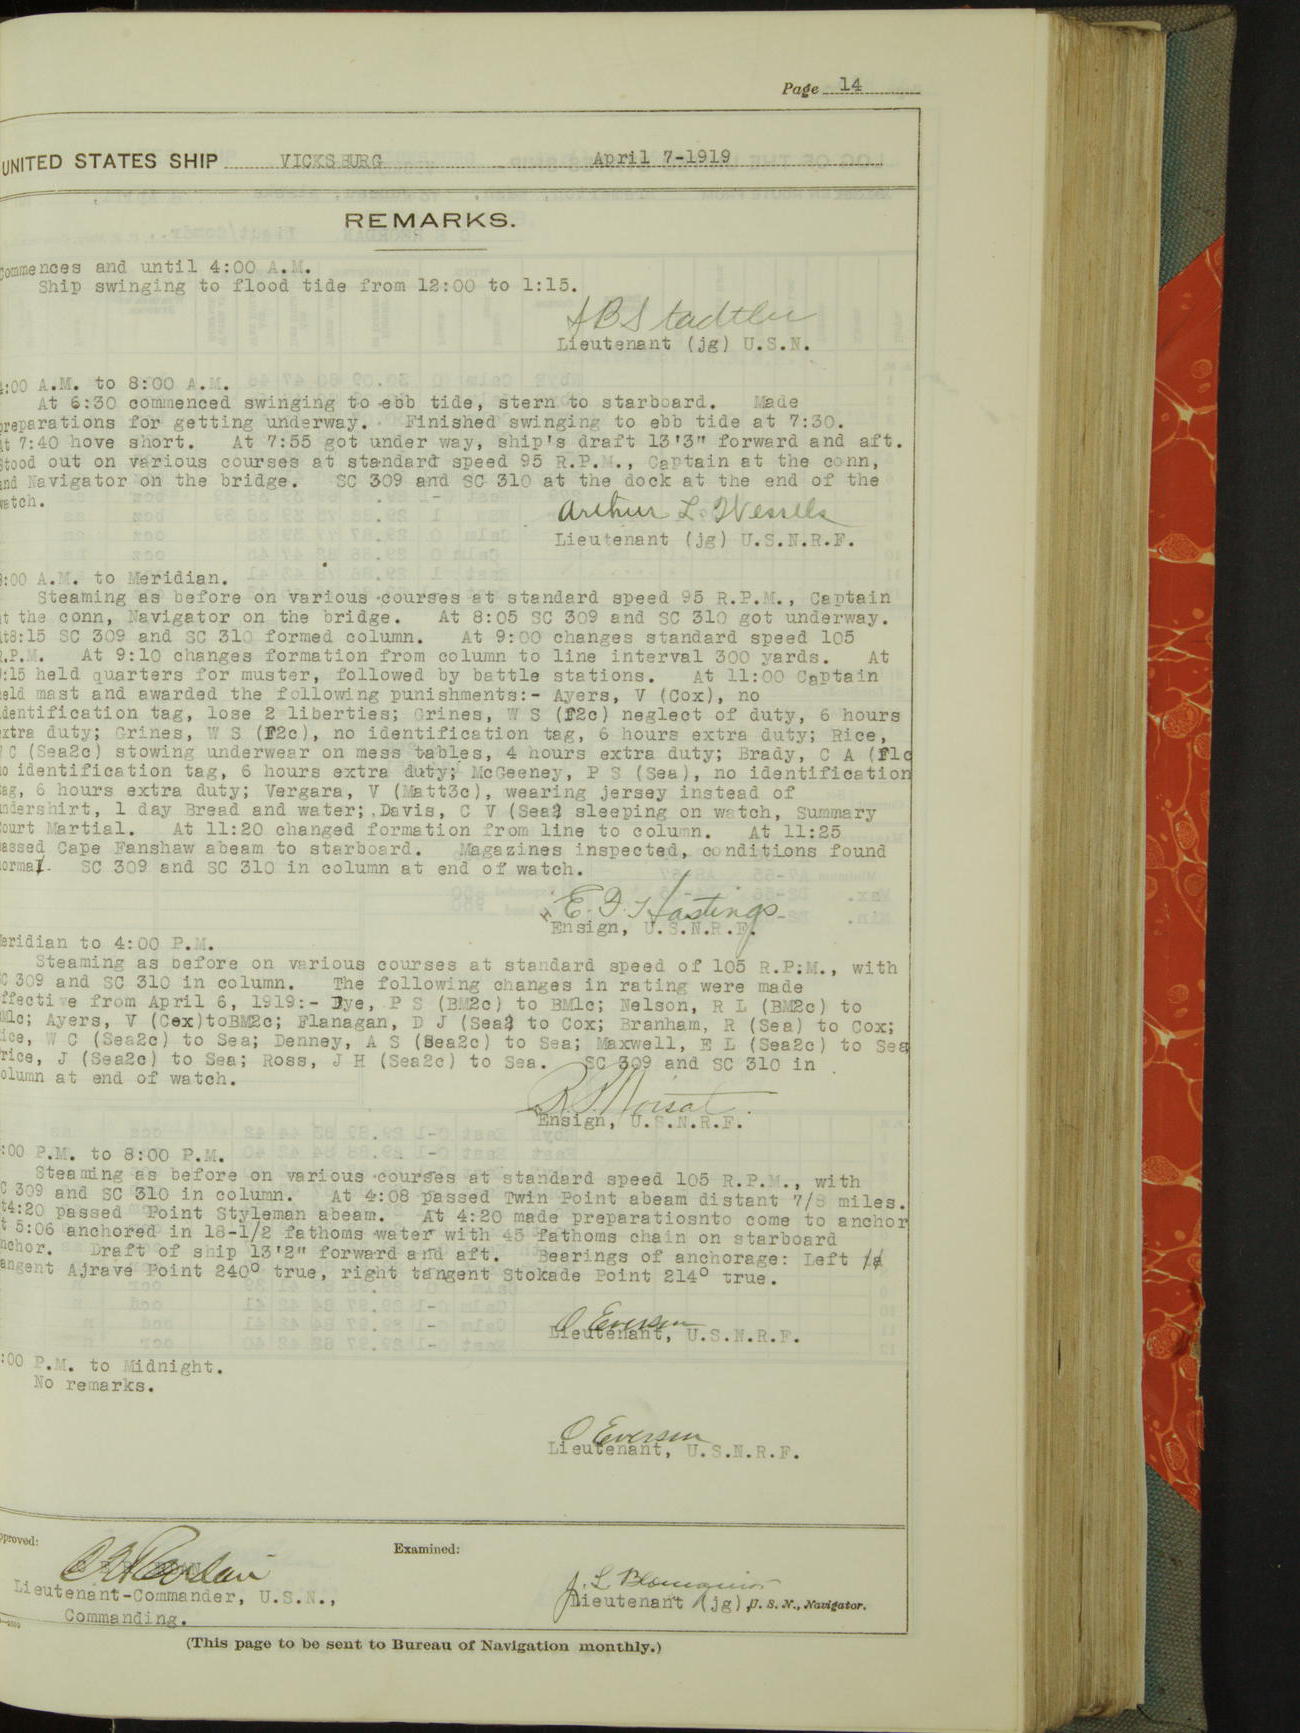 Page 14
UNITED STATES SHIP VICKSBURG April 7-1919
REMARKS.
Commences and until 4:00 A.M.
Ship swinging to flood tide from 12:00 to 1:15.
Lieutenant (jg) U.S.N.
:00 A.M. to 8:00 A.M.
At 6:30 commenced swinging to ebb tide, stern to starboard. Made
preparations for getting underway. Finished swinging to ebb tide at 7:30.
At 7:40 hove short. At 7:55 got under way, ship's draft 13'3" forward and aft.
Stood out on various courses at standard speed 95 R.P.M., Captain at the conn,
and Navigator on the bridge. SC 309 and SC 310 at the dock at the end of the
watch.
Arthur L. Wessels
Lieutenant (jg) U.S.N.R.F.
:00 A.M. to Meridian.
Steaming as before on various courses at standard speed 95 R.P.M., Captain
at the conn, Navigator on the bridge. At 8:05 SC 309 and SC 310 got underway.
At8:15 SC 309 and SC 310 formed column. At 9:00 changes standard speed 105
R.P.M. At 9:10 changes formation from column to line interval 300 yards. At
:15 held quarters for muster, followed by battle stations. At 11:00 Captain
held mast and awarded the following punishments:- Ayers, V (Cox), no
identification tag, lose 2 liberties; Grines, W S (F2c) neglect of duty, 6 hours
extra duty; Grines, W S (F2c), no identification tag, 6 hours extra duty; Rice,
W C (Sea2c) stowing underwear on mess tables, 4 hours extra duty; Brady, C A (F1c
no identification tag, 6 hours extra duty; McGeeney, P S (Sea), no identification
tag, 6 hours extra duty; Vergara, V (Matt3c), wearing jersey instead of
undershirt, 1 day Bread and water; Davis, C V (Sea2 sleeping on watch, Summary
Court Martial. At 11:20 changed formation from line to column. At 11:25
passed Cape Fanshaw abeam to starboard. Magazines inspected, conditions found
normal. SC 309 and SC 310 in column at end of watch.
Hastings
Ensign, U.S.N.R.F.
Meridian to 4:00 P.M.
Steaming as before on various courses at standard speed of 105 R.P.M., with
SC 309 and SC 310 in column. The following changes in rating were made
effective from April 6, 1919:- Dye, P S (BM2c) to BM1c; Nelson, R L (BM2c) to
BM1c; Ayers, V (Cox)toBM2c; Flanagan, D J (Sea2 to Cox; Branham, R (Sea) to Cox;
Rice, W C (Sea2c) to Sea; Denney, A S (Sea2c) to Sea; Maxwell, E L (Sea2c) to Sea
rice, J (Sea2c) to Sea; Ross, J H (Sea2c) to Sea. SC 309 and SC 310 in
column at end of watch.
Ensign, U.S.N.R.F.
:00 P.M. to 8:00 P.M.
Steaming as before on various courses at standard speed 105 R.P.M., with
SC 309 and SC 310 in column. At 4:08 passed Twin Point abeam distant 7/8 miles.
At4:20 passed Point Styleman abeam. At 4:20 made preparatiosnto come to anchor
At 5:06 anchored in 18-1/2 fathoms water with 45 fathoms chain on starboard
anchor. Draft of ship 13'2" forward and aft. Bearings of anchorage: Left
tangent Ajrave Point 240° true, right tangent Stokade Point 214° true.
O Everson
Lieutenant, U.S.N.R.F.
:00 P.M. to Midnight.
No remarks.
O Everson
Lieutenant, U.S.N.R.F.
Approved:
Examined:
Lieutenant-Commander, U.S.N.,
Lieutenant (jg), U. S. N., Navigator.
Commanding.
(This page to be sent to Bureau of Navigation monthly.)